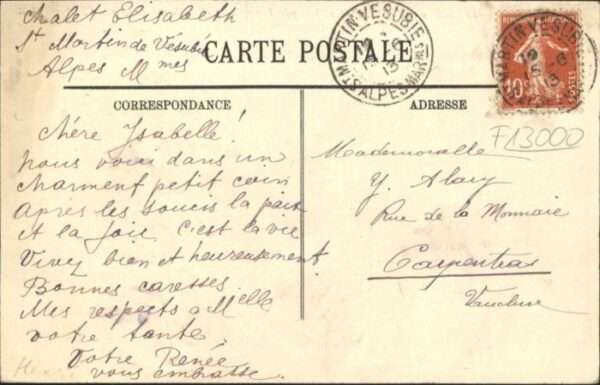 Chalet Elisabeth
St Martin de Vesubie
Alpes Mmes
CARTE POSTALE
ST MARTIN-VESUBIE
ALPES MARMES
13
MARTIN VESUBIE
19 - 6
13
10
POSTES
CORRESPONDANCE
ADRESSE
F13000
Chère Ysabelle!
nous voici dans un
charment petit coin
après les soucis la paix
et la joie c'est la vie
Vivez bien et heureusement
Bonnes caresses
Mes respects a Melle
votre tante,
Votre Renée
vous embrasse.
Mademoiselle
Y. Alary
Rue de la Monnaie
Carpentras
Vaucluse